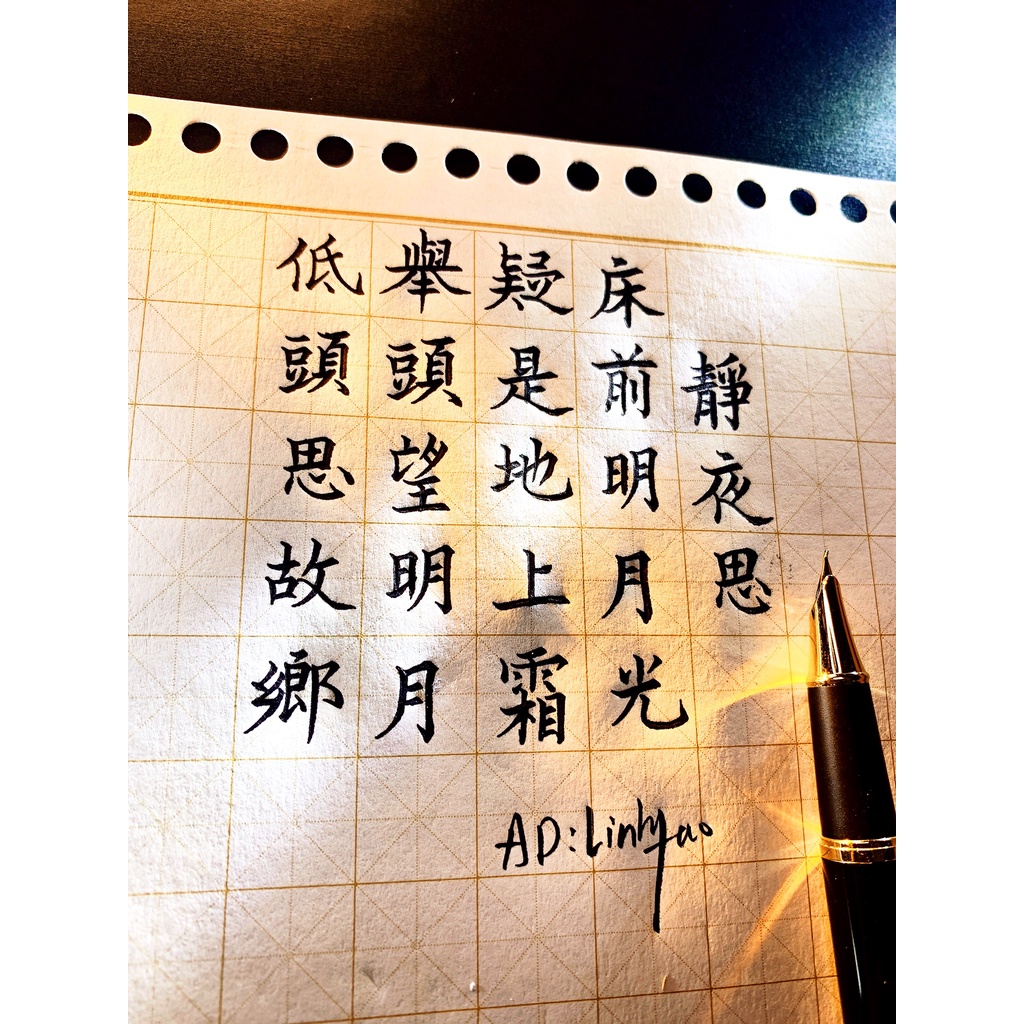 靜夜思
床前明月光
疑是地上霜
舉頭望明月
低頭思故鄉
AD:Linhyao